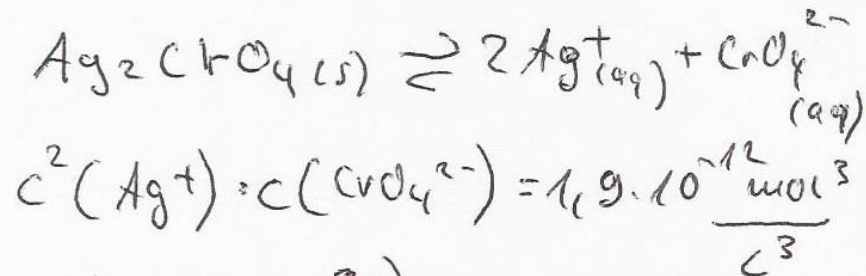 Ag₂CrO₄(s) ⇌ 2Ag⁺(aq) + CrO₄²⁻(aq)
c²(Ag⁺)·c(CrO₄²⁻) = 1,9·10⁻¹² mol³/L³